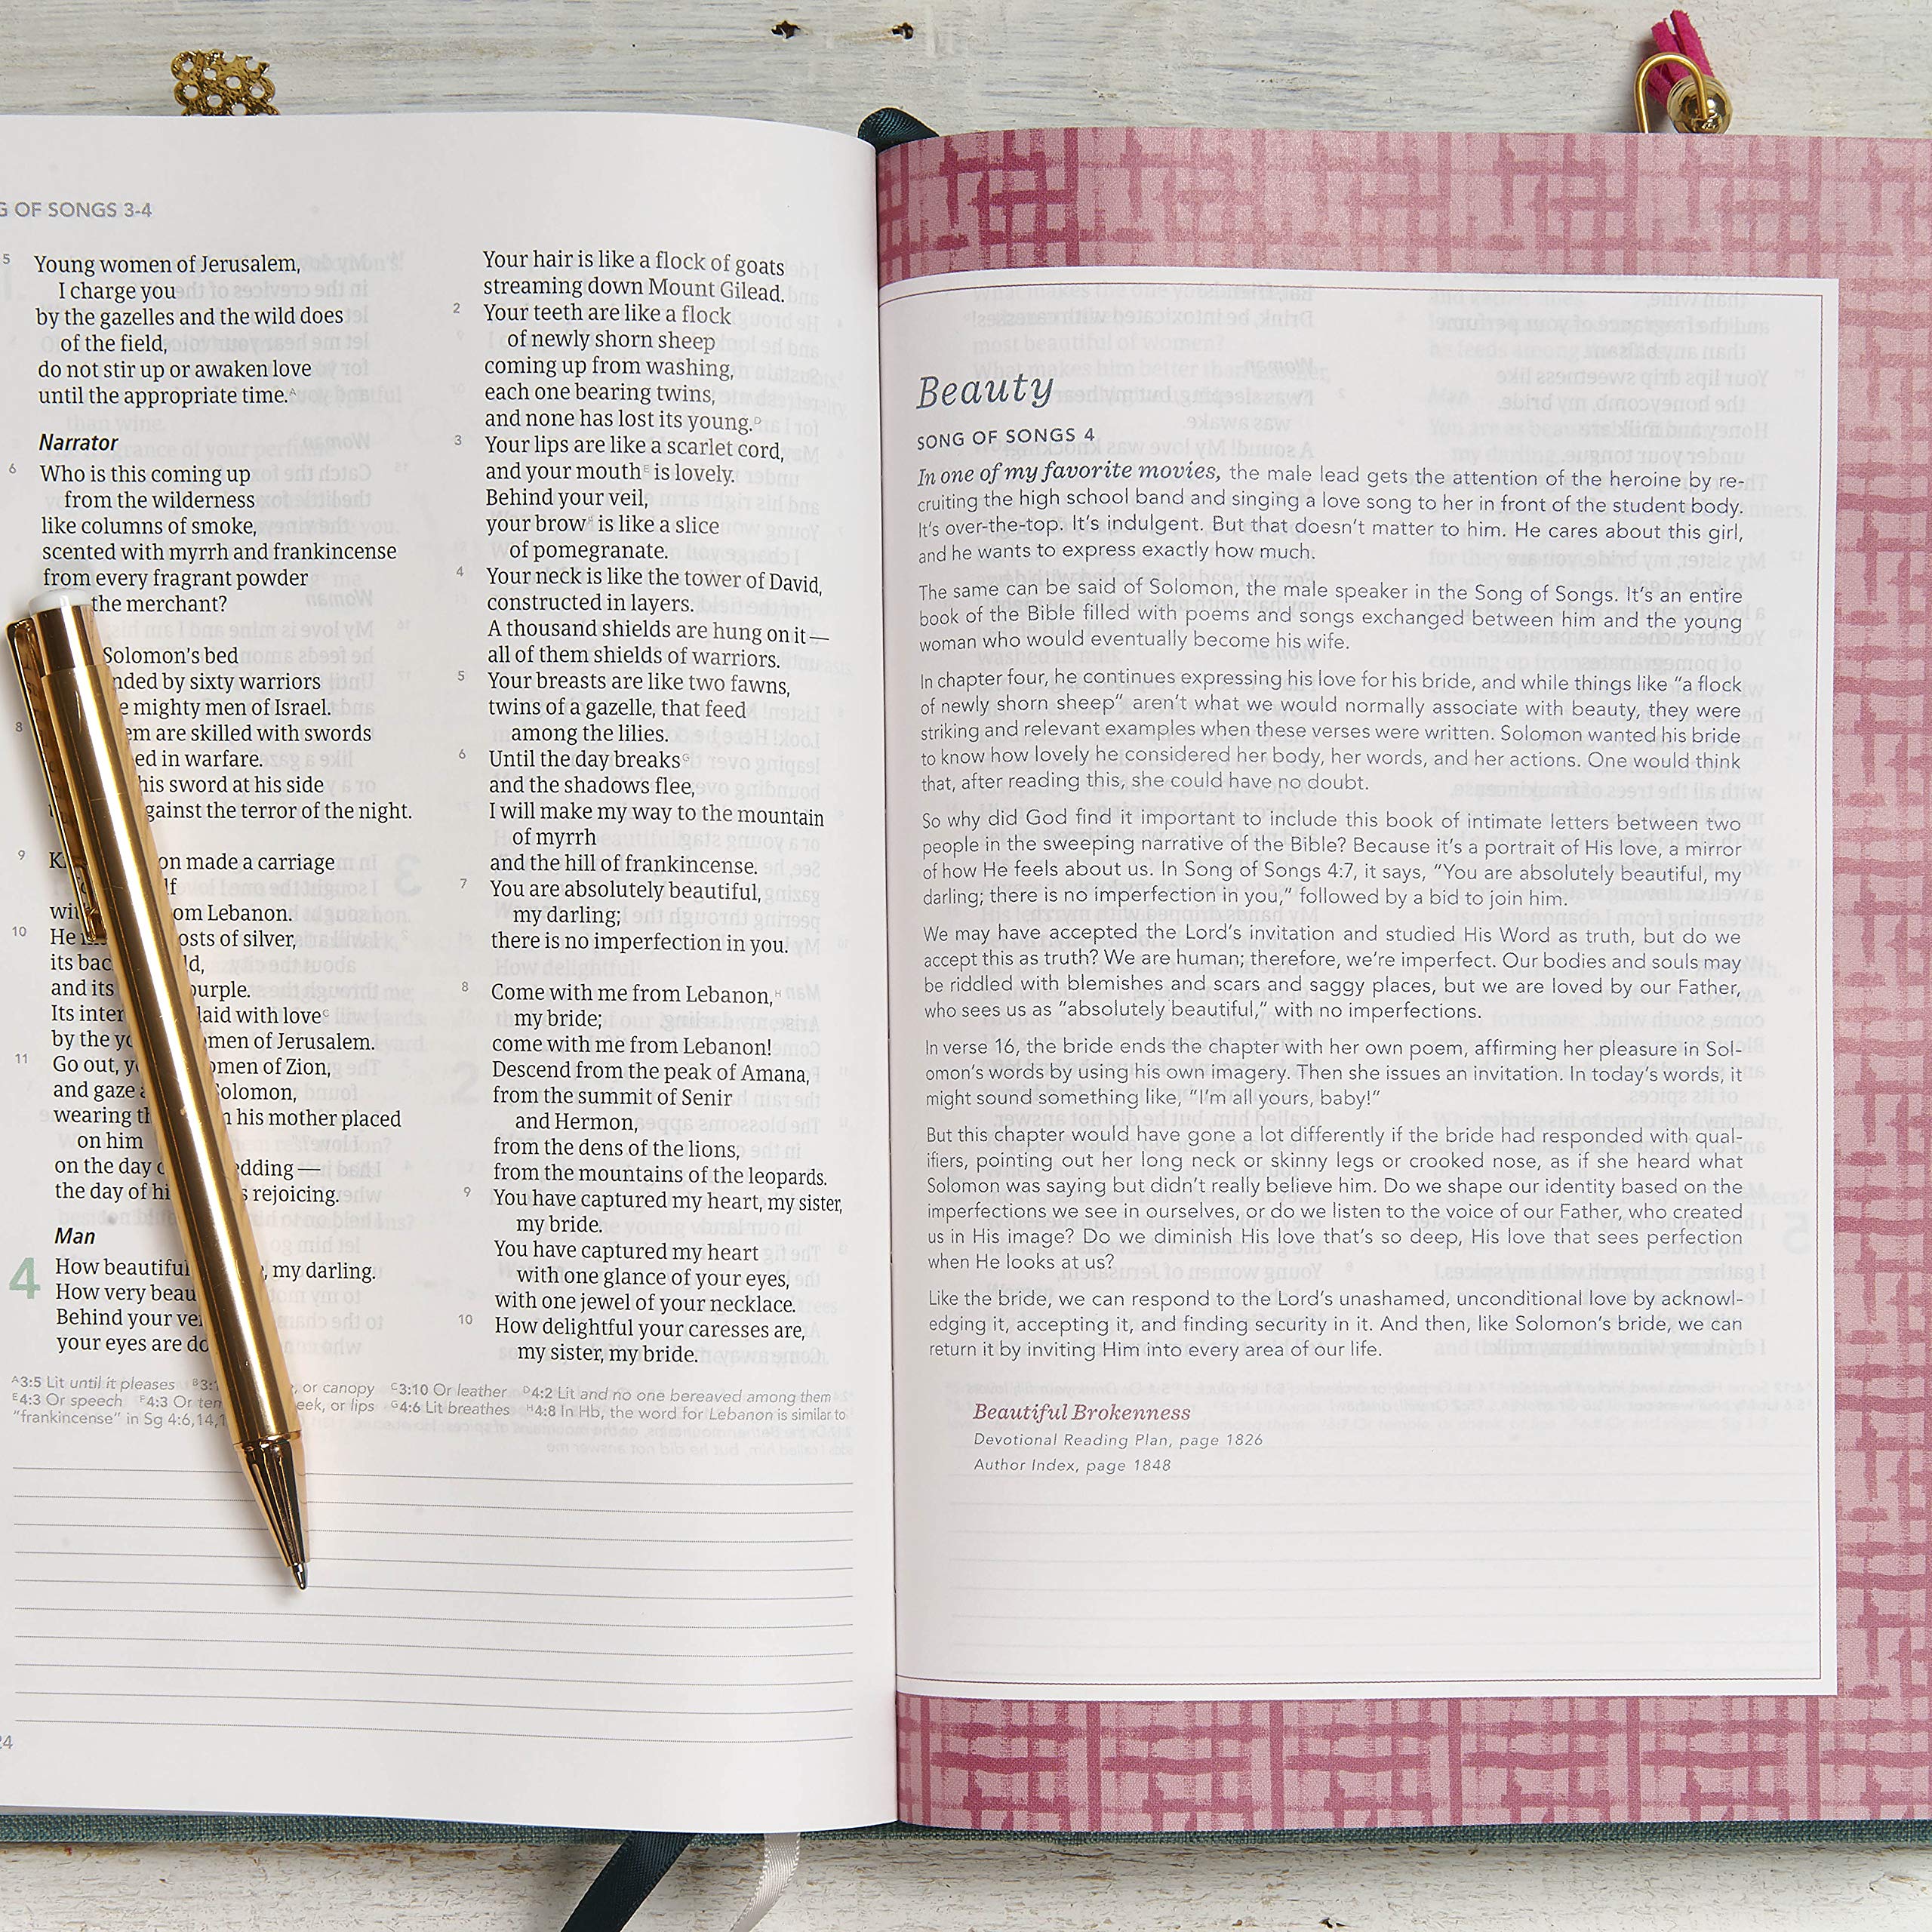 G OF SONGS 3-4
5 Young women of Jerusalem,
I charge you
by the gazelles and the wild does
of the field,
do not stir up or awaken love
until the appropriate time.ᴬ
Narrator
6 Who is this coming up
from the wilderness
like columns of smoke,
scented with myrrh and frankincense
from every fragrant powder
the merchant?
Solomon's bed
by sixty warriors
mighty men of Israel.
8 are skilled with swords
in warfare.
his sword at his side
against the terror of the night.
9 made a carriage
from Lebanon.
10 He of silver,
its
and its
Its laid with loveᶜ
by the women of Jerusalem.
11 Go out, women of Zion,
and gaze Solomon,
wearing his mother placed
on him
on the day
the day of rejoicing.
Man
4 How beautiful my darling.
How very
Behind your
your eyes are
Your hair is like a flock of goats
streaming down Mount Gilead.
2 Your teeth are like a flock
of newly shorn sheep
coming up from washing,
each one bearing twins,
and none has lost its young.ᴰ
3 Your lips are like a scarlet cord,
and your mouthᴱ is lovely.
Behind your veil,
your browᶠ is like a slice
of pomegranate.
4 Your neck is like the tower of David,
constructed in layers.
A thousand shields are hung on it —
all of them shields of warriors.
5 Your breasts are like two fawns,
twins of a gazelle, that feed
among the lilies.
6 Until the day breaksᴳ
and the shadows flee,
I will make my way to the mountain
of myrrh
and the hill of frankincense.
7 You are absolutely beautiful,
my darling;
there is no imperfection in you.
8 Come with me from Lebanon,ᴴ
my bride;
come with me from Lebanon!
Descend from the peak of Amana,
from the summit of Senir
and Hermon,
from the dens of the lions,
from the mountains of the leopards.
9 You have captured my heart, my sister,
my bride.
You have captured my heart
with one glance of your eyes,
with one jewel of your necklace.
10 How delightful your caresses are,
my sister, my bride.
ᴬ3:5 Lit until it pleases or canopy ᶜ3:10 Or leather ᴰ4:2 Lit and no one bereaved among them
ᴱ4:3 Or speech 4:3 Or or lips ᴳ4:6 Lit breathes ᴴ4:8 In Hb, the word for Lebanon is similar to
"frankincense" in Sg 4:6,14,
24
Beauty
SONG OF SONGS 4
In one of my favorite movies, the male lead gets the attention of the heroine by re-
cruiting the high school band and singing a love song to her in front of the student body.
It's over-the-top. It's indulgent. But that doesn't matter to him. He cares about this girl,
and he wants to express exactly how much.
The same can be said of Solomon, the male speaker in the Song of Songs. It's an entire
book of the Bible filled with poems and songs exchanged between him and the young
woman who would eventually become his wife.
In chapter four, he continues expressing his love for his bride, and while things like "a flock
of newly shorn sheep" aren't what we would normally associate with beauty, they were
striking and relevant examples when these verses were written. Solomon wanted his bride
to know how lovely he considered her body, her words, and her actions. One would think
that, after reading this, she could have no doubt.
So why did God find it important to include this book of intimate letters between two
people in the sweeping narrative of the Bible? Because it's a portrait of His love, a mirror
of how He feels about us. In Song of Songs 4:7, it says, "You are absolutely beautiful, my
darling; there is no imperfection in you," followed by a bid to join him.
We may have accepted the Lord's invitation and studied His Word as truth, but do we
accept this as truth? We are human; therefore, we're imperfect. Our bodies and souls may
be riddled with blemishes and scars and saggy places, but we are loved by our Father,
who sees us as "absolutely beautiful," with no imperfections.
In verse 16, the bride ends the chapter with her own poem, affirming her pleasure in Sol-
omon's words by using his own imagery. Then she issues an invitation. In today's words, it
might sound something like, "I'm all yours, baby!"
But this chapter would have gone a lot differently if the bride had responded with qual-
ifiers, pointing out her long neck or skinny legs or crooked nose, as if she heard what
Solomon was saying but didn't really believe him. Do we shape our identity based on the
imperfections we see in ourselves, or do we listen to the voice of our Father, who created
us in His image? Do we diminish His love that's so deep, His love that sees perfection
when He looks at us?
Like the bride, we can respond to the Lord's unashamed, unconditional love by acknowl-
edging it, accepting it, and finding security in it. And then, like Solomon's bride, we can
return it by inviting Him into every area of our life.
Beautiful Brokenness
Devotional Reading Plan, page 1826
Author Index, page 1848